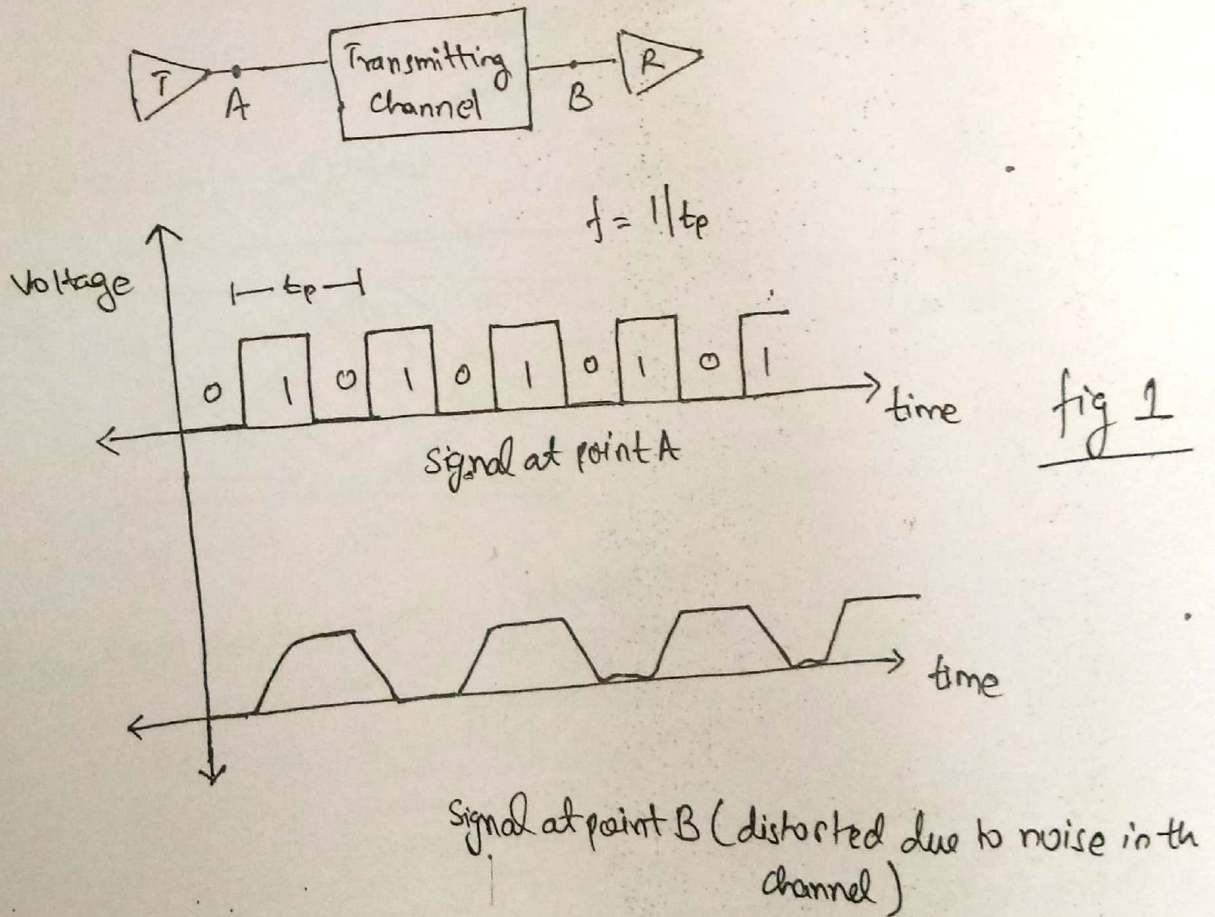 T
A
Transmitting
Channel
B
R
f = 1/tp
Voltage
tp
0 1 0 1 0 1 0 1 0 1
time
fig 1
Signal at point A
time
Signal at point B (distorted due to noise in th
channel)